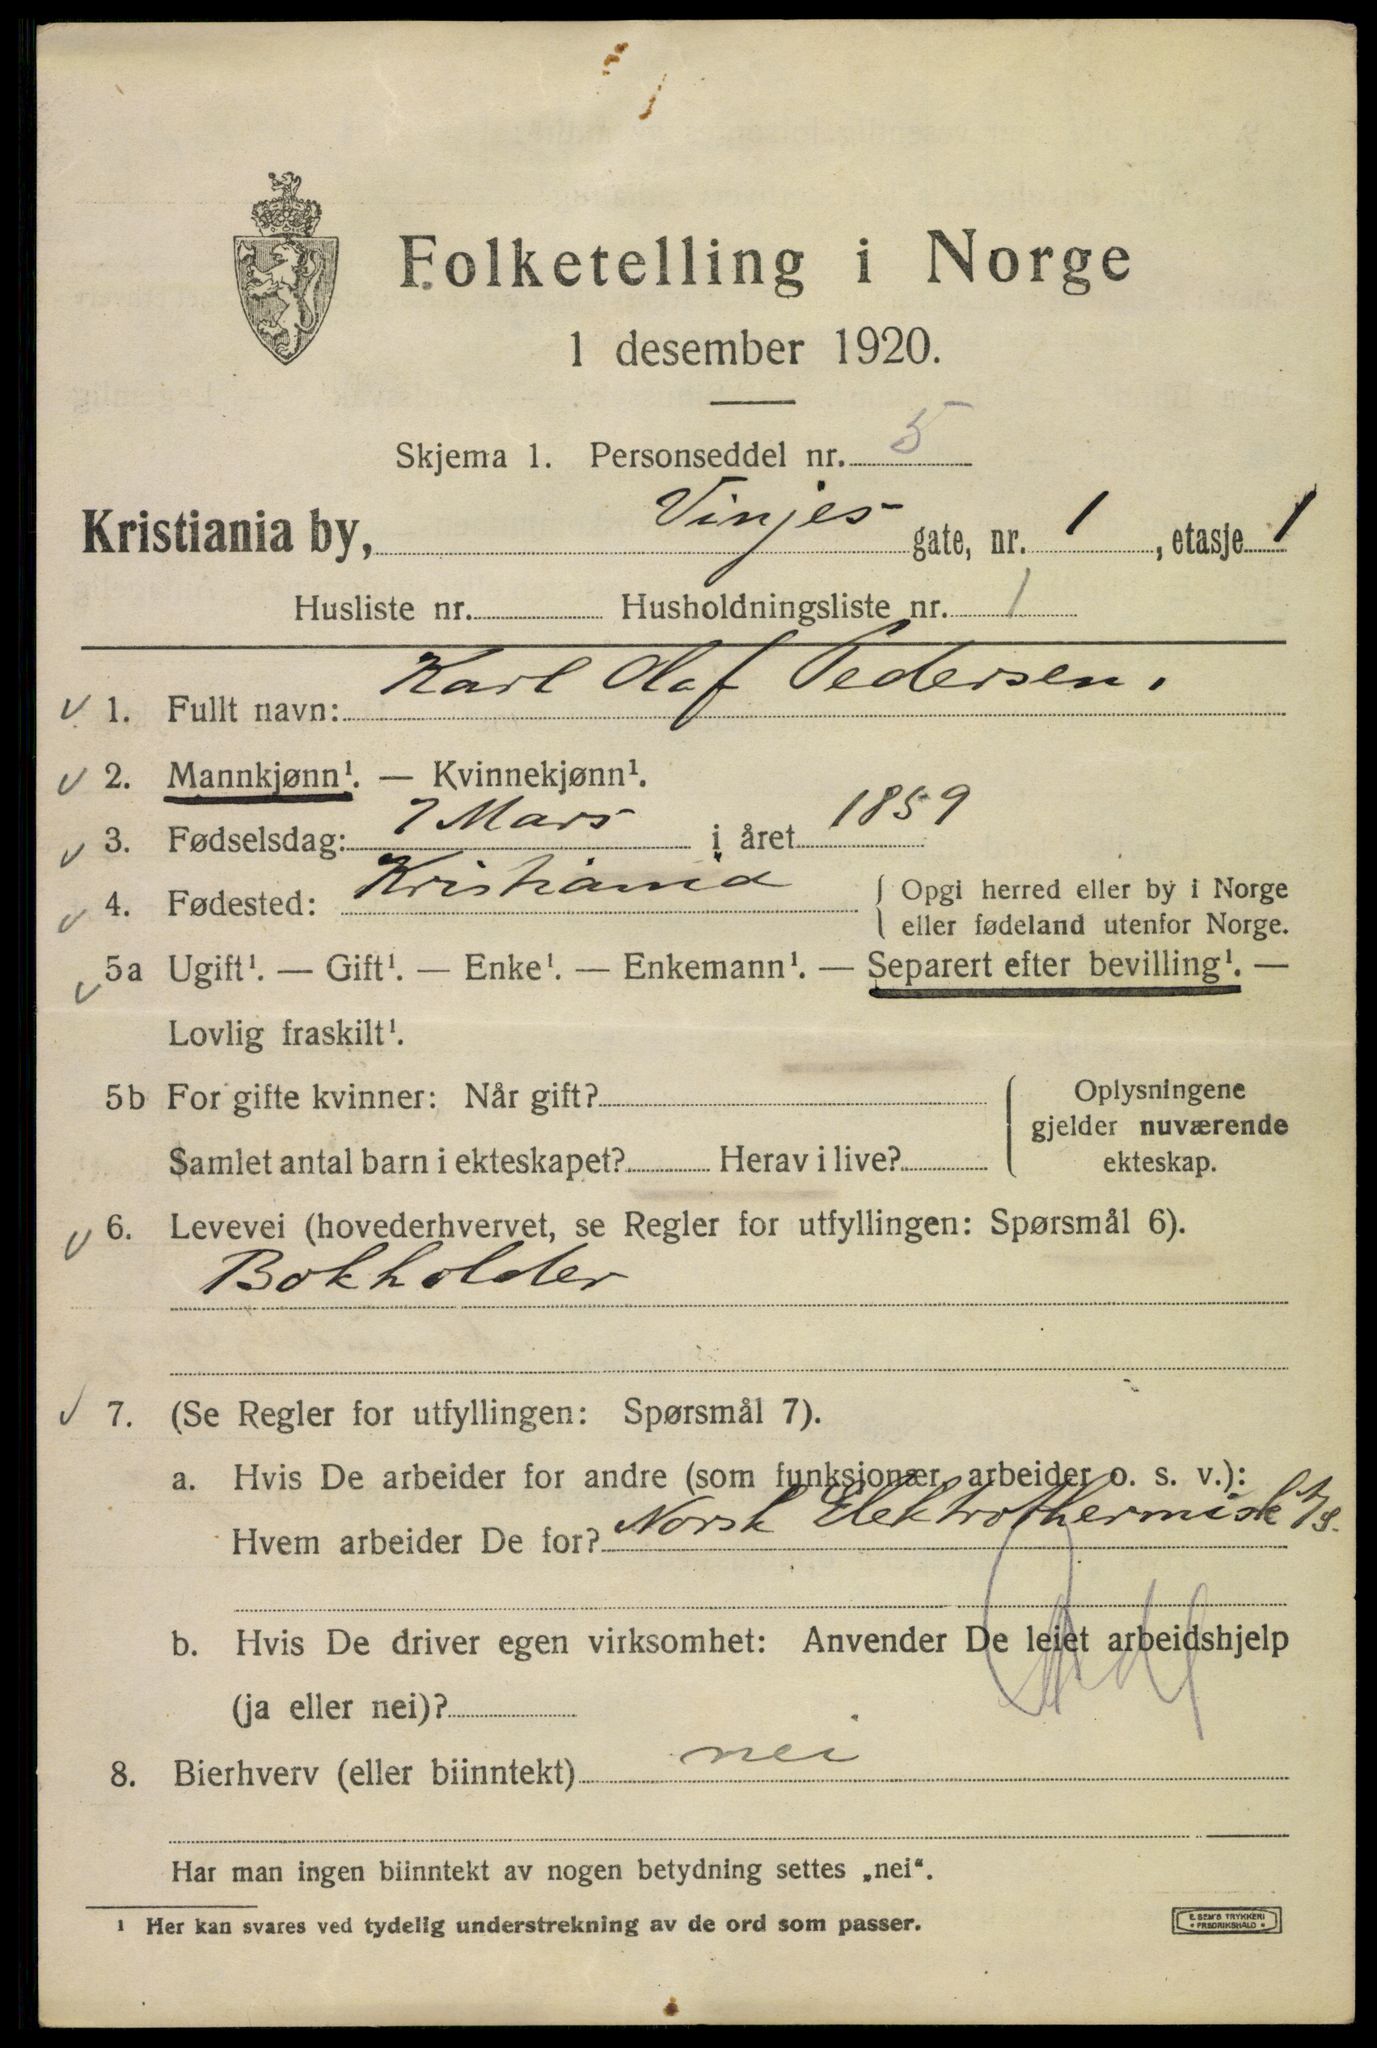 Folketelling i Norge
1 desember 1920.
Skjema 1. Personseddel nr. 5
Kristiania by, Vinjes gate, nr. 1, etasje 1
Husliste nr. Husholdningsliste nr. 1
1. Fullt navn: Karl Olaf Pedersen.
2. Mannkjønn¹. — Kvinnekjønn¹.
3. Fødselsdag: 7 Mars i året 1859
4. Fødested: Kristiania { Opgi herred eller by i Norge
eller fødeland utenfor Norge.
5a Ugift¹. — Gift¹. — Enke¹. — Enkemann¹. — Separert efter bevilling¹. —
Lovlig fraskilt¹.
5b For gifte kvinner: Når gift?
Samlet antal barn i ekteskapet? Herav i live?
Oplysningene
gjelder nuværende
ekteskap.
6. Levevei (hovederhvervet, se Regler for utfyllingen: Spørsmål 6).
Bokholder
7. (Se Regler for utfyllingen: Spørsmål 7).
a. Hvis De arbeider for andre (som funksjonær, arbeider o. s. v.):
Hvem arbeider De for? Norsk Elektrothermisk A/S.
b. Hvis De driver egen virksomhet: Anvender De leiet arbeidshjelp
(ja eller nei)?
8. Bierhverv (eller biinntekt) nei
Har man ingen biinntekt av nogen betydning settes „nei“.
¹ Her kan svares ved tydelig understrekning av de ord som passer.
E. SEM'S TRYKKERI
• FREDRIKSHALD •